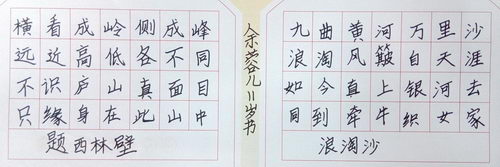 横看成岭侧成峰
远近高低各不同
不识庐山真面目
只缘身在此山中
题西林壁
余蓉儿川岁书
九曲黄河万里沙
浪淘风簸自天涯
如今直上银河去
同到牵牛织女家
浪淘沙